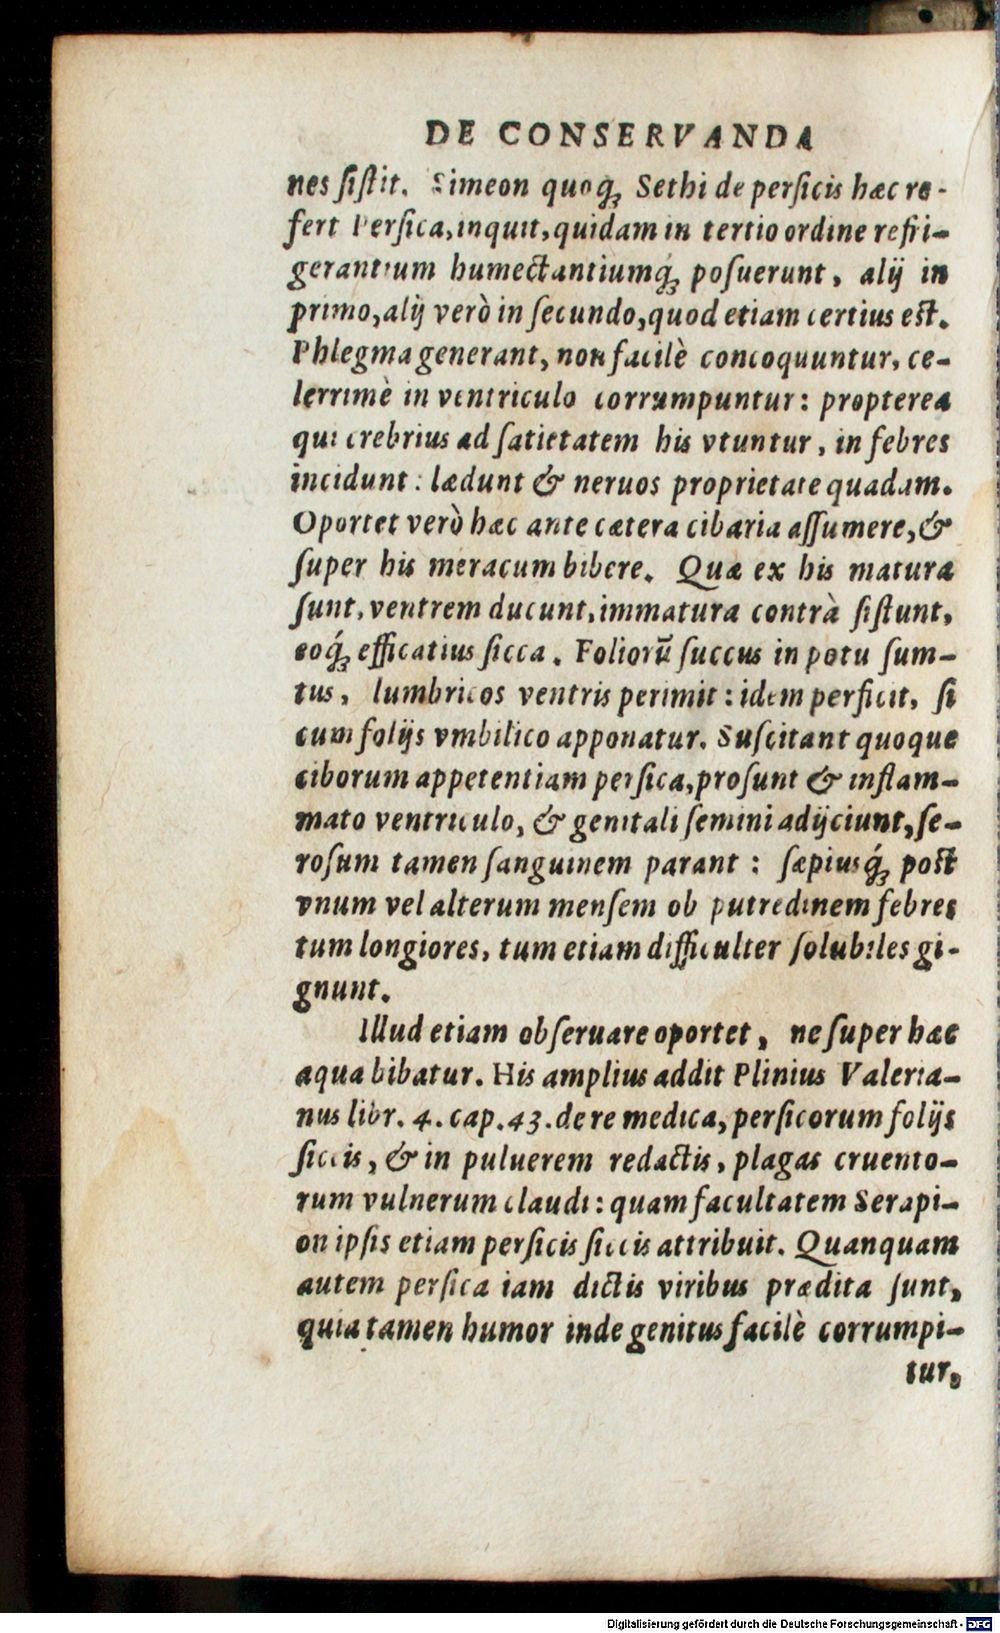 DE CONSERVANDA
nes ſiſtit. Simeon quoq́; Sethi de perſicis hæc re-
fert Perſica, inquit, quidam in tertio ordine refri-
gerantium humectantiumq́; poſuerunt, alij in
primo, alij verò in ſecundo, quod etiam certius est.
Phlegma generant, non facilè concoquuntur, ce-
lerrimè in ventriculo corrumpuntur: propterea
qui crebrius ad ſatietatem his vtuntur, in febres
incidunt: lædunt & neruos proprietate quadam.
Oportet verò hæc ante cætera cibaria aſſumere, &
ſuper his meracum bibere. Quæ ex his matura
ſunt, ventrem ducunt, immatura contrà ſiſtunt,
eoq́; efficatius ſicca. Foliorũ ſuccus in potu ſum-
tus, lumbricos ventris perimit: idem perficit, ſi
cum folijs vmbilico apponatur. Suſcitant quoque
ciborum appetentiam perſica, proſunt & inflam-
mato ventriculo, & genitali ſemini adijciunt, ſe-
roſum tamen ſanguinem parant: ſæpiusq́; post
vnum vel alterum menſem ob putredinem febres
tum longiores, tum etiam difficulter ſolubiles gi-
gnunt.
Illud etiam obſeruare oportet, ne ſuper hæc
aqua bibatur. His amplius addit Plinius Valeria-
nus libr. 4. cap. 43. de re medica, perſicorum folijs
ſiccis, & in puluerem redactis, plagas cruento-
rum vulnerum claudi: quam facultatem Serapi-
on ipſis etiam perſicis ſiccis attribuit. Quanquam
autem perſica iam dictis viribus prædita ſunt,
quia tamen humor inde genitus facilè corrumpi-
tur,
Digitalisierung gefördert durch die Deutsche Forschungsgemeinschaft - DFG